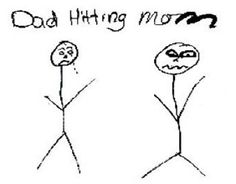 Dad Hitting mom